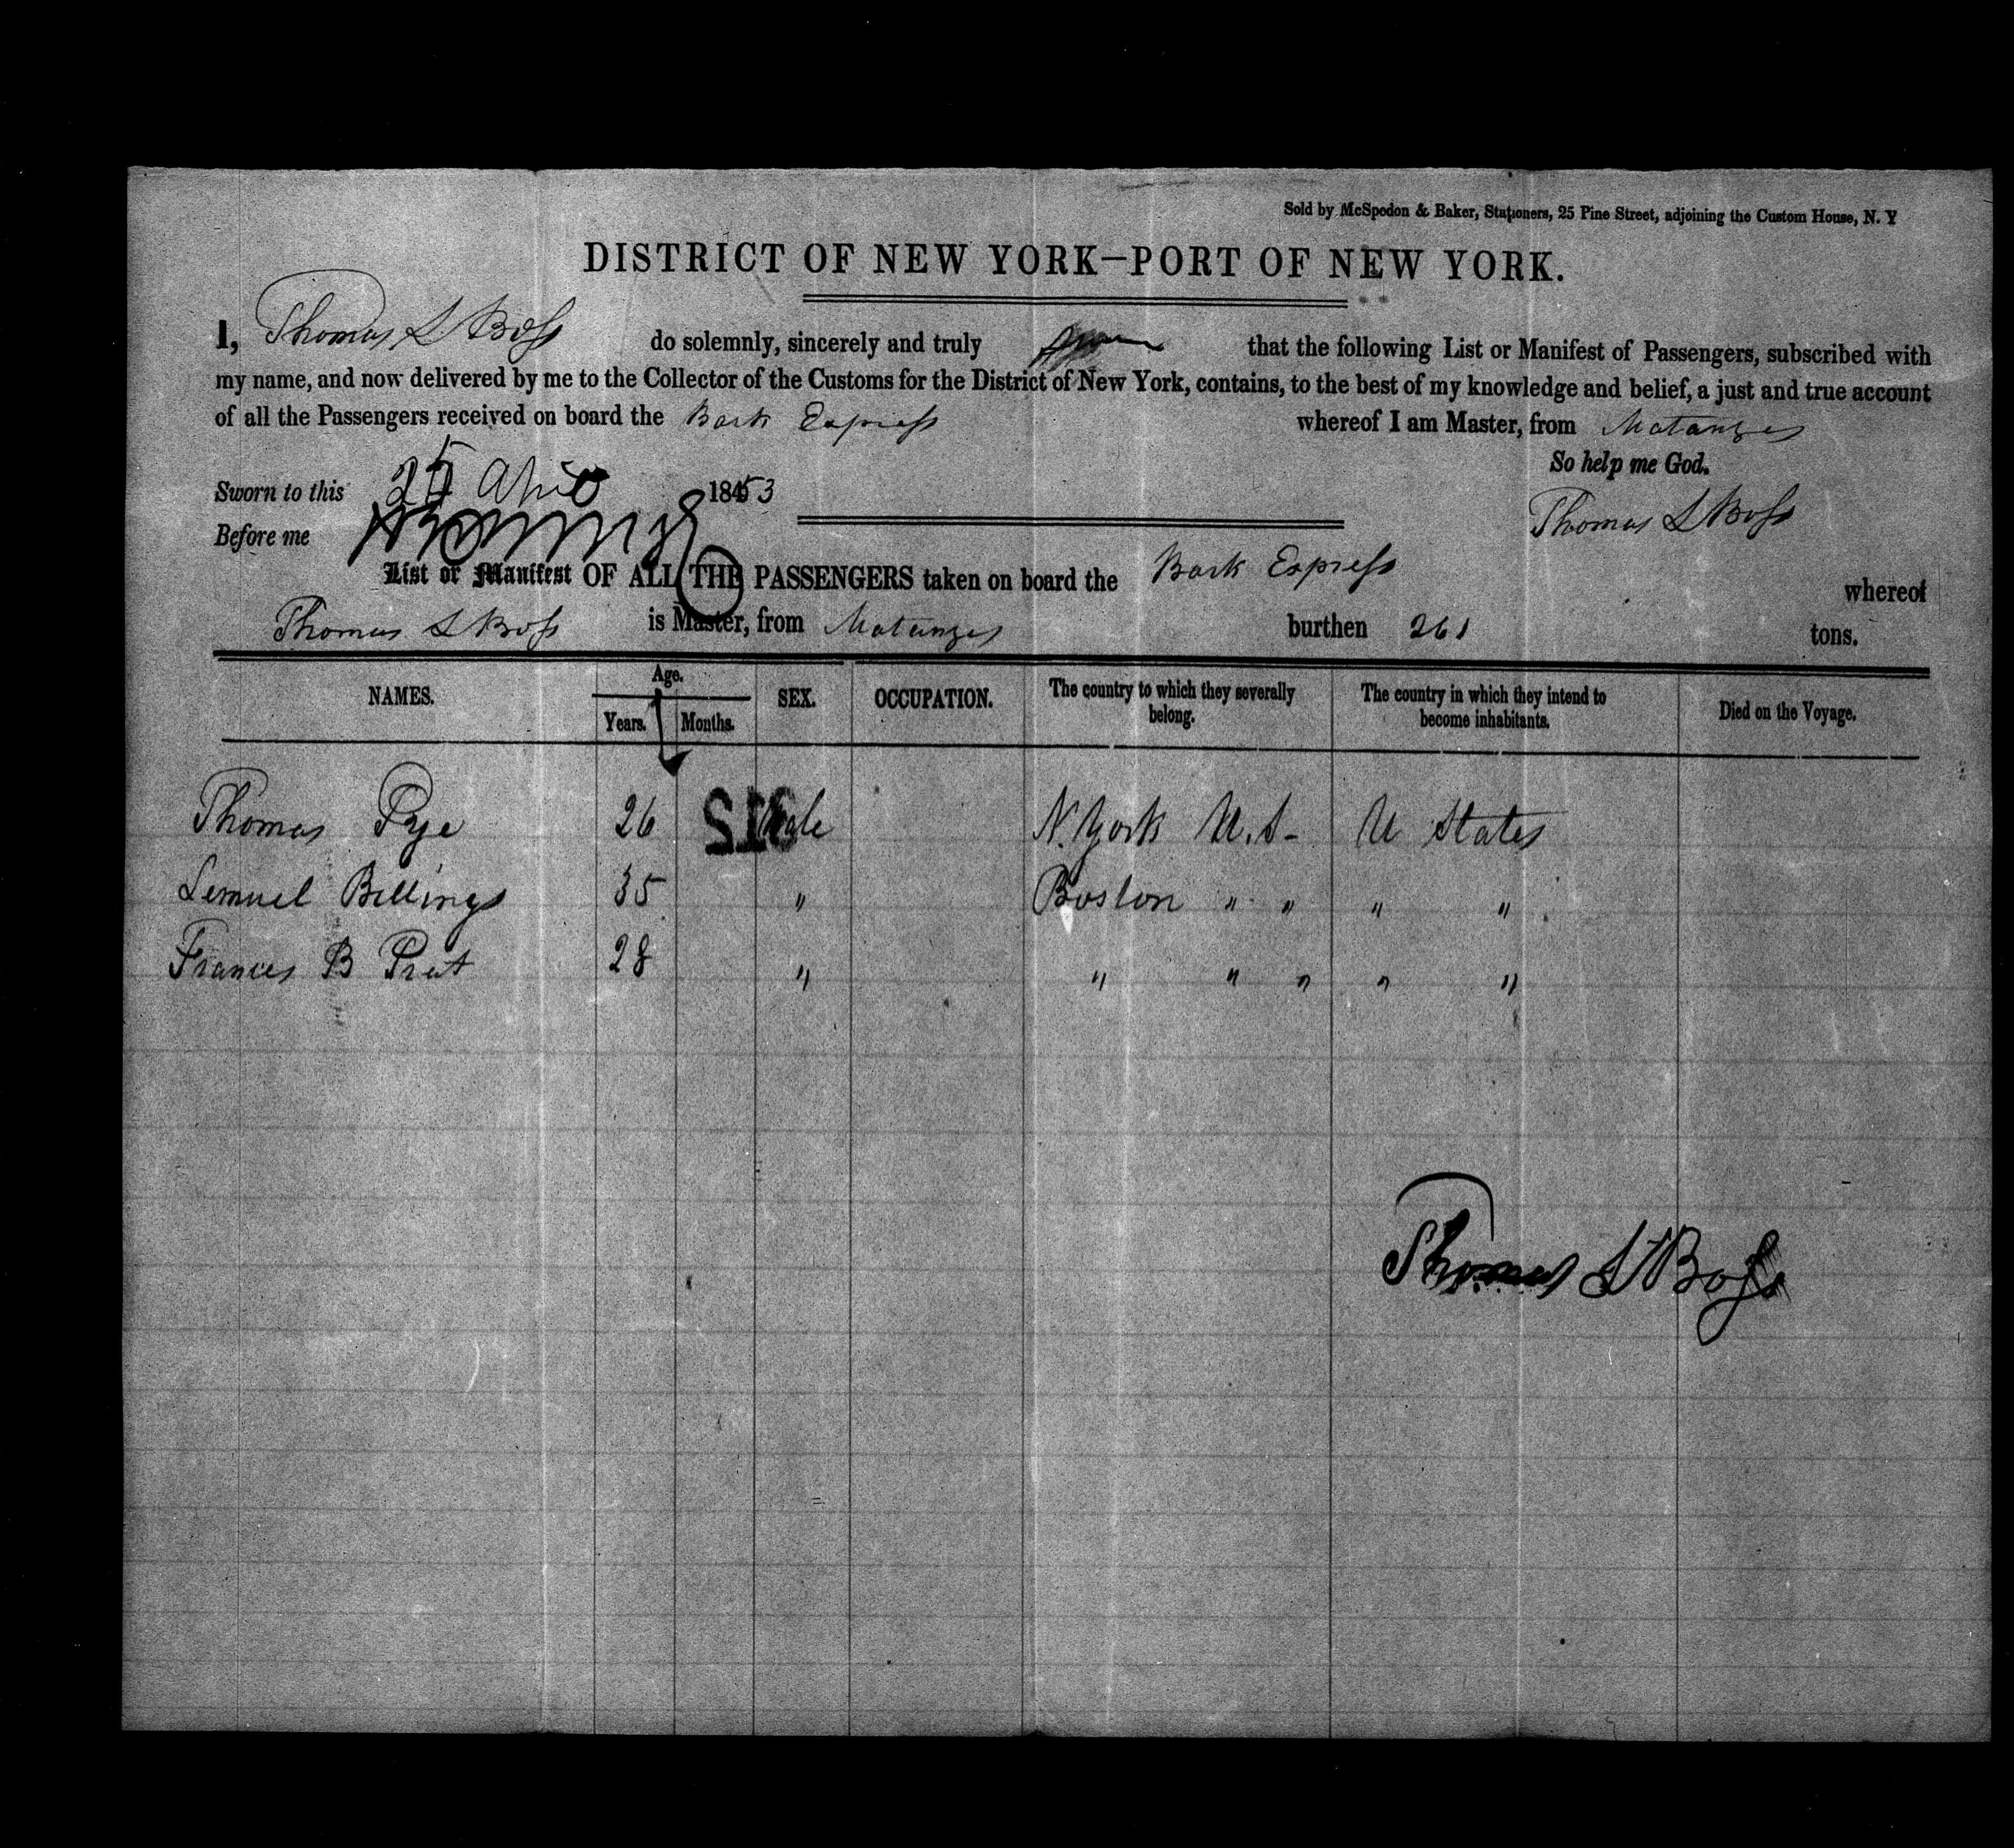 Sold by McSpedon & Baker, Stationers, 25 Pine Street, adjoining the Custom House, N. Y
DISTRICT OF NEW YORK—PORT OF NEW YORK.
I, Thomas L Boss do solemnly, sincerely and truly swear that the following List or Manifest of Passengers, subscribed with
my name, and now delivered by me to the Collector of the Customs for the District of New York, contains, to the best of my knowledge and belief, a just and true account
of all the Passengers received on board the Bark Express whereof I am Master, from Matanzas
So help me God.
Sworn to this 25 April 1853
Thomas L Boss
Before me
List or Manifest OF ALL THE PASSENGERS taken on board the Bark Express whereof
Thomas L Boss is Master, from Matanzas burthen 261 tons.
NAMES. Age. Years. Months. SEX. OCCUPATION. The country to which they severally belong. The country in which they intend to become inhabitants. Died on the Voyage.
Thomas Pye 26 Male N. York U.S- U States
Lemuel Billings 35 " Boston " " " "
Frances B Prat 28 " " " " " "
Thomas L Boss